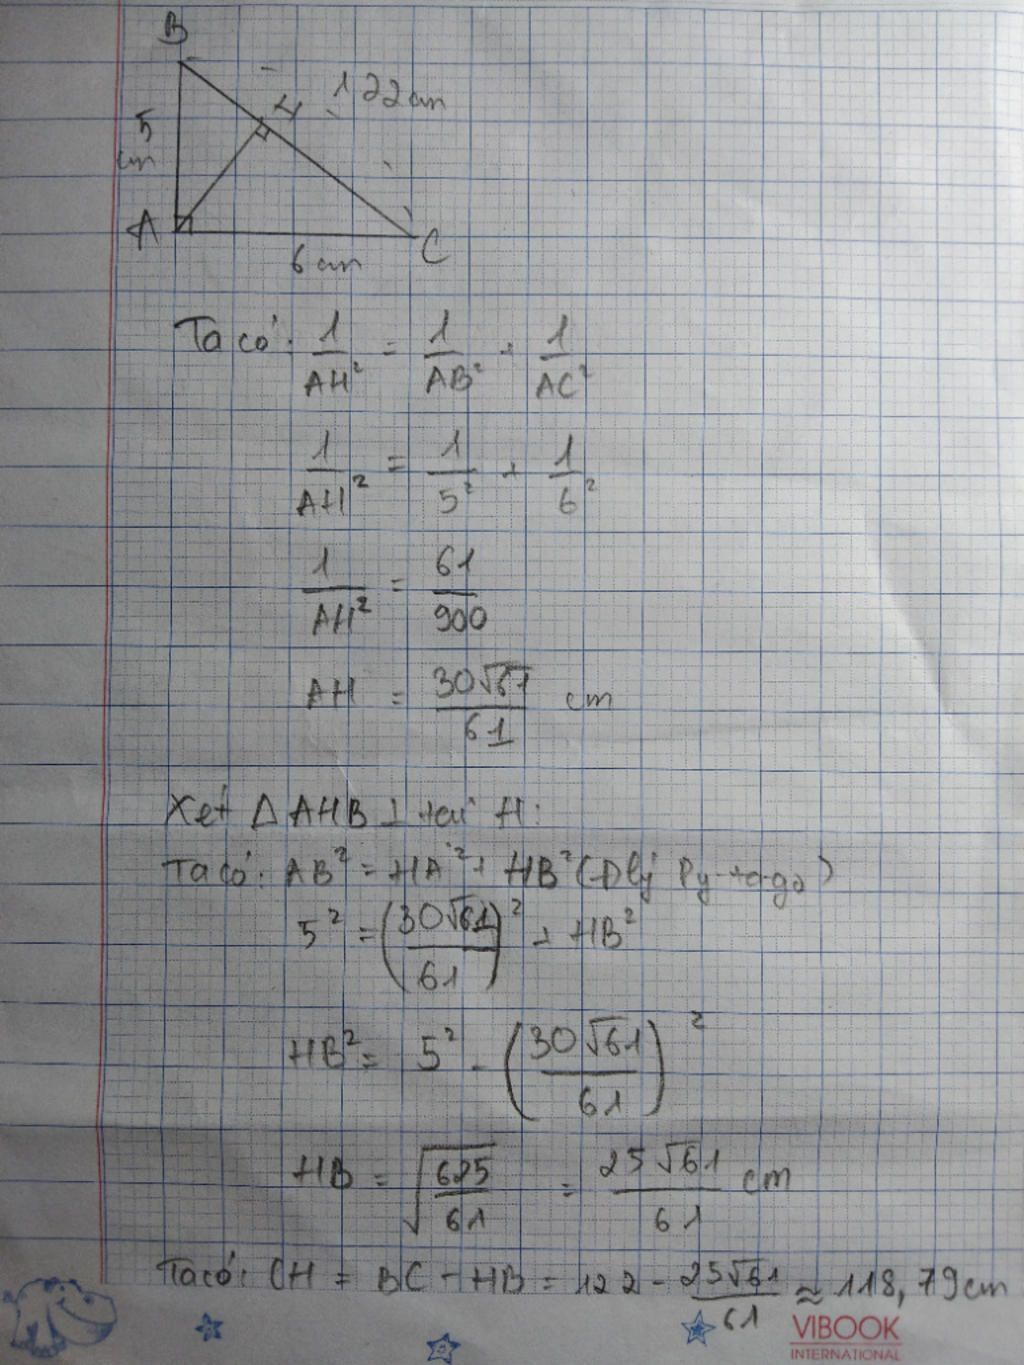 B
122cm
H
5
cm
A
6cm
C
Ta có: 1/AH² = 1/AB² + 1/AC²
1/AH² = 1/5² + 1/6²
1/AH² = 61/900
AH = 30√61/61 cm
Xét Δ AHB ⊥ tại H:
Ta có: AB² = HA² + HB² (Đlý Py-ta-go)
5² = (30√61/61)² + HB²
HB² = 5² - (30√61/61)²
HB = √(625/61) = 25√61/61 cm
Ta có: CH = BC - HB = 122 - 25√61/61 ≈ 118,79cm
VIBOOK
INTERNATIONAL